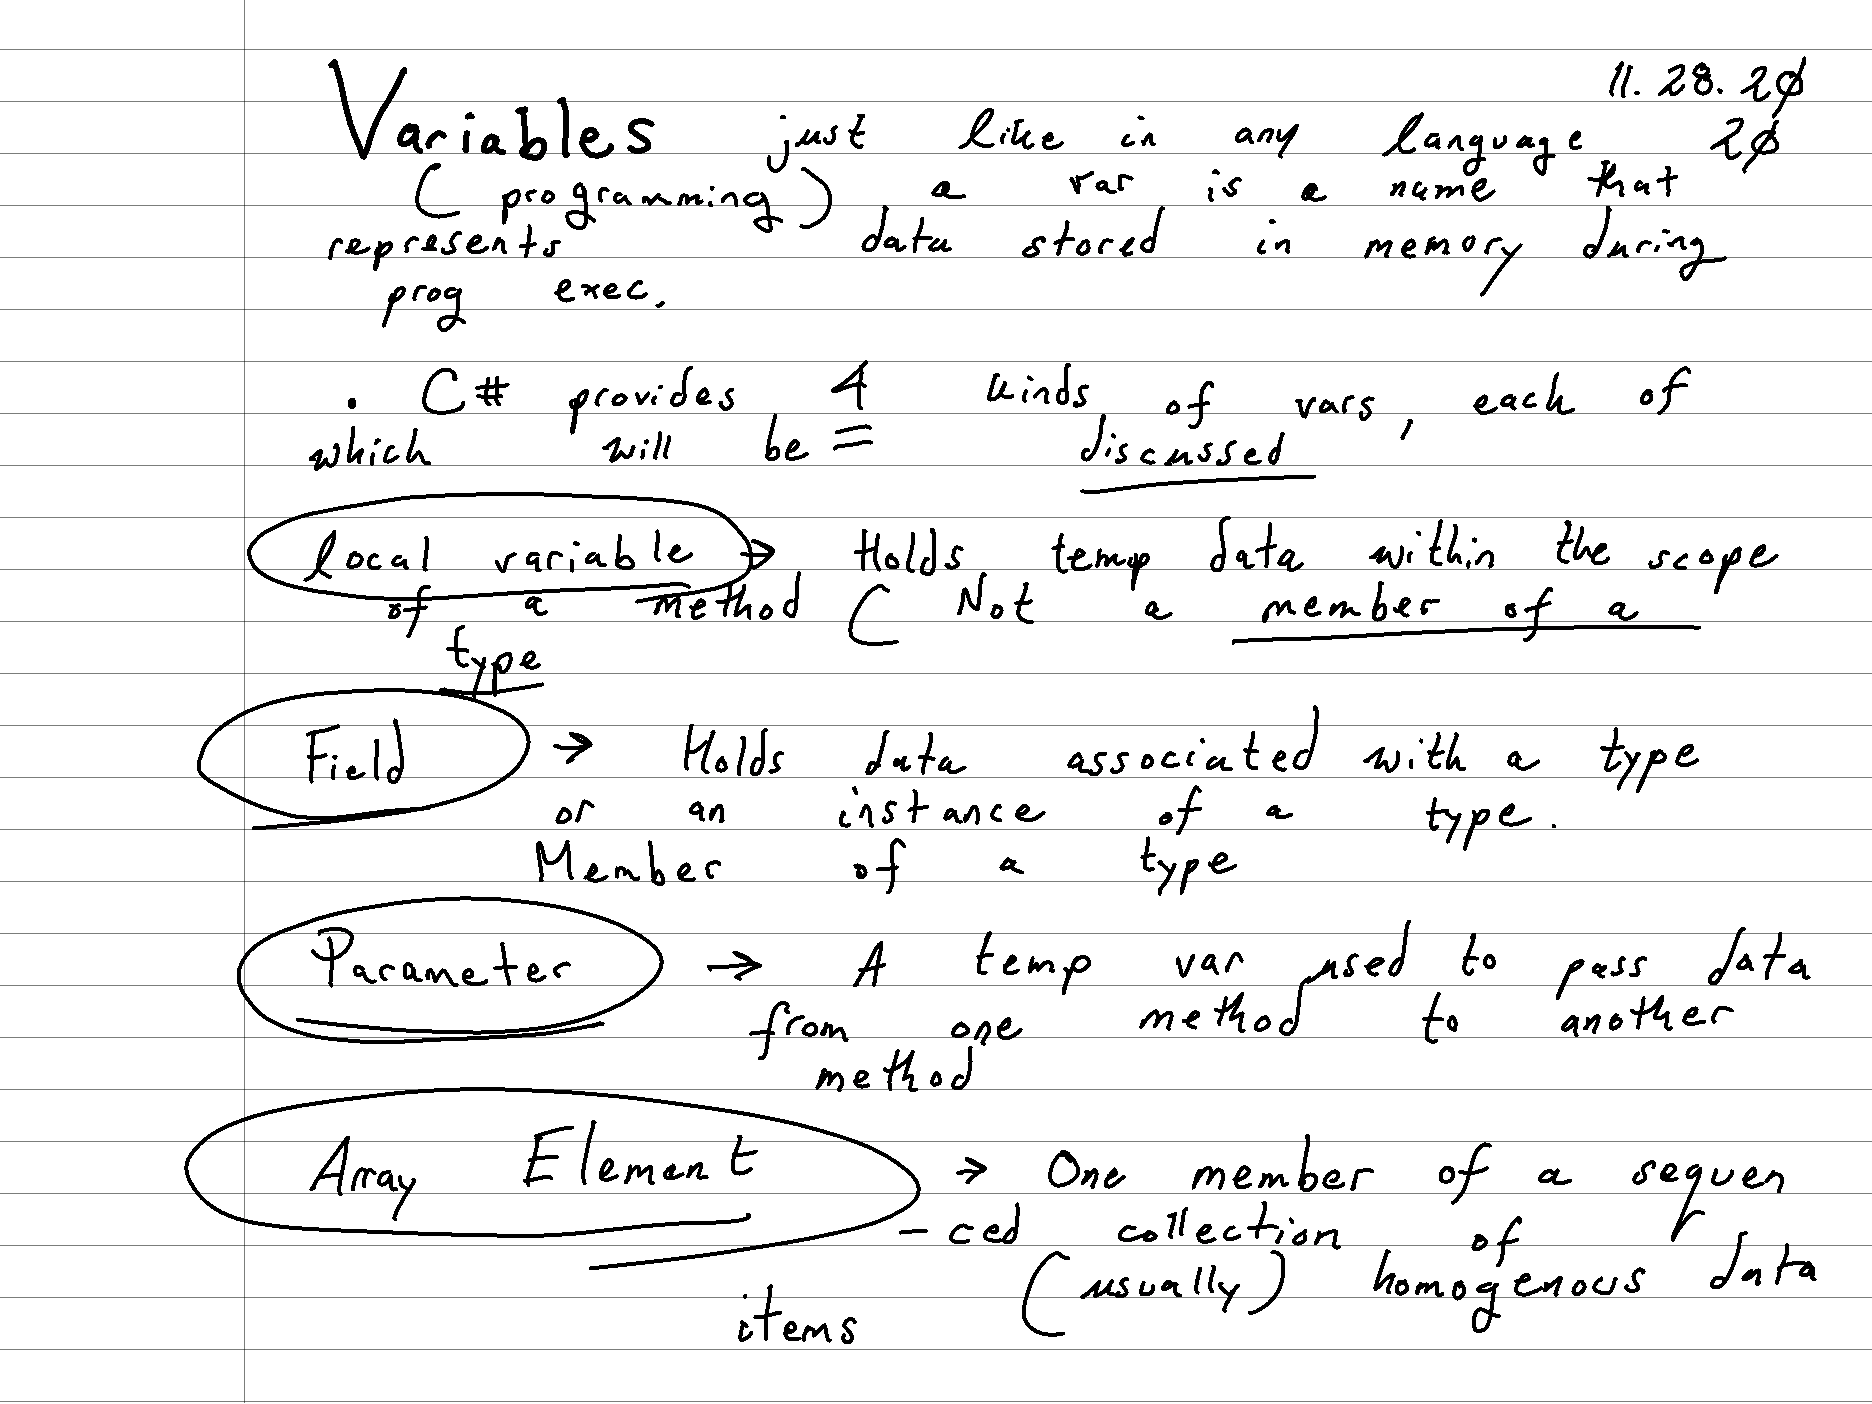 11. 28. 20
Variables just like in any language 20
(programming) a var is a name that
represents data stored in memory during
prog exec.
. C# provides 4 kinds of vars, each of
which will be discussed
local variable → Holds temp data within the scope
of a method ( Not a member of a
type
Field → Holds data associated with a type
or an instance of a type.
Member of a type
Parameter → A temp var used to pass data
from one method to another
method
Array Element → One member of a sequen
-ced collection of
(usually) homogenous data
items